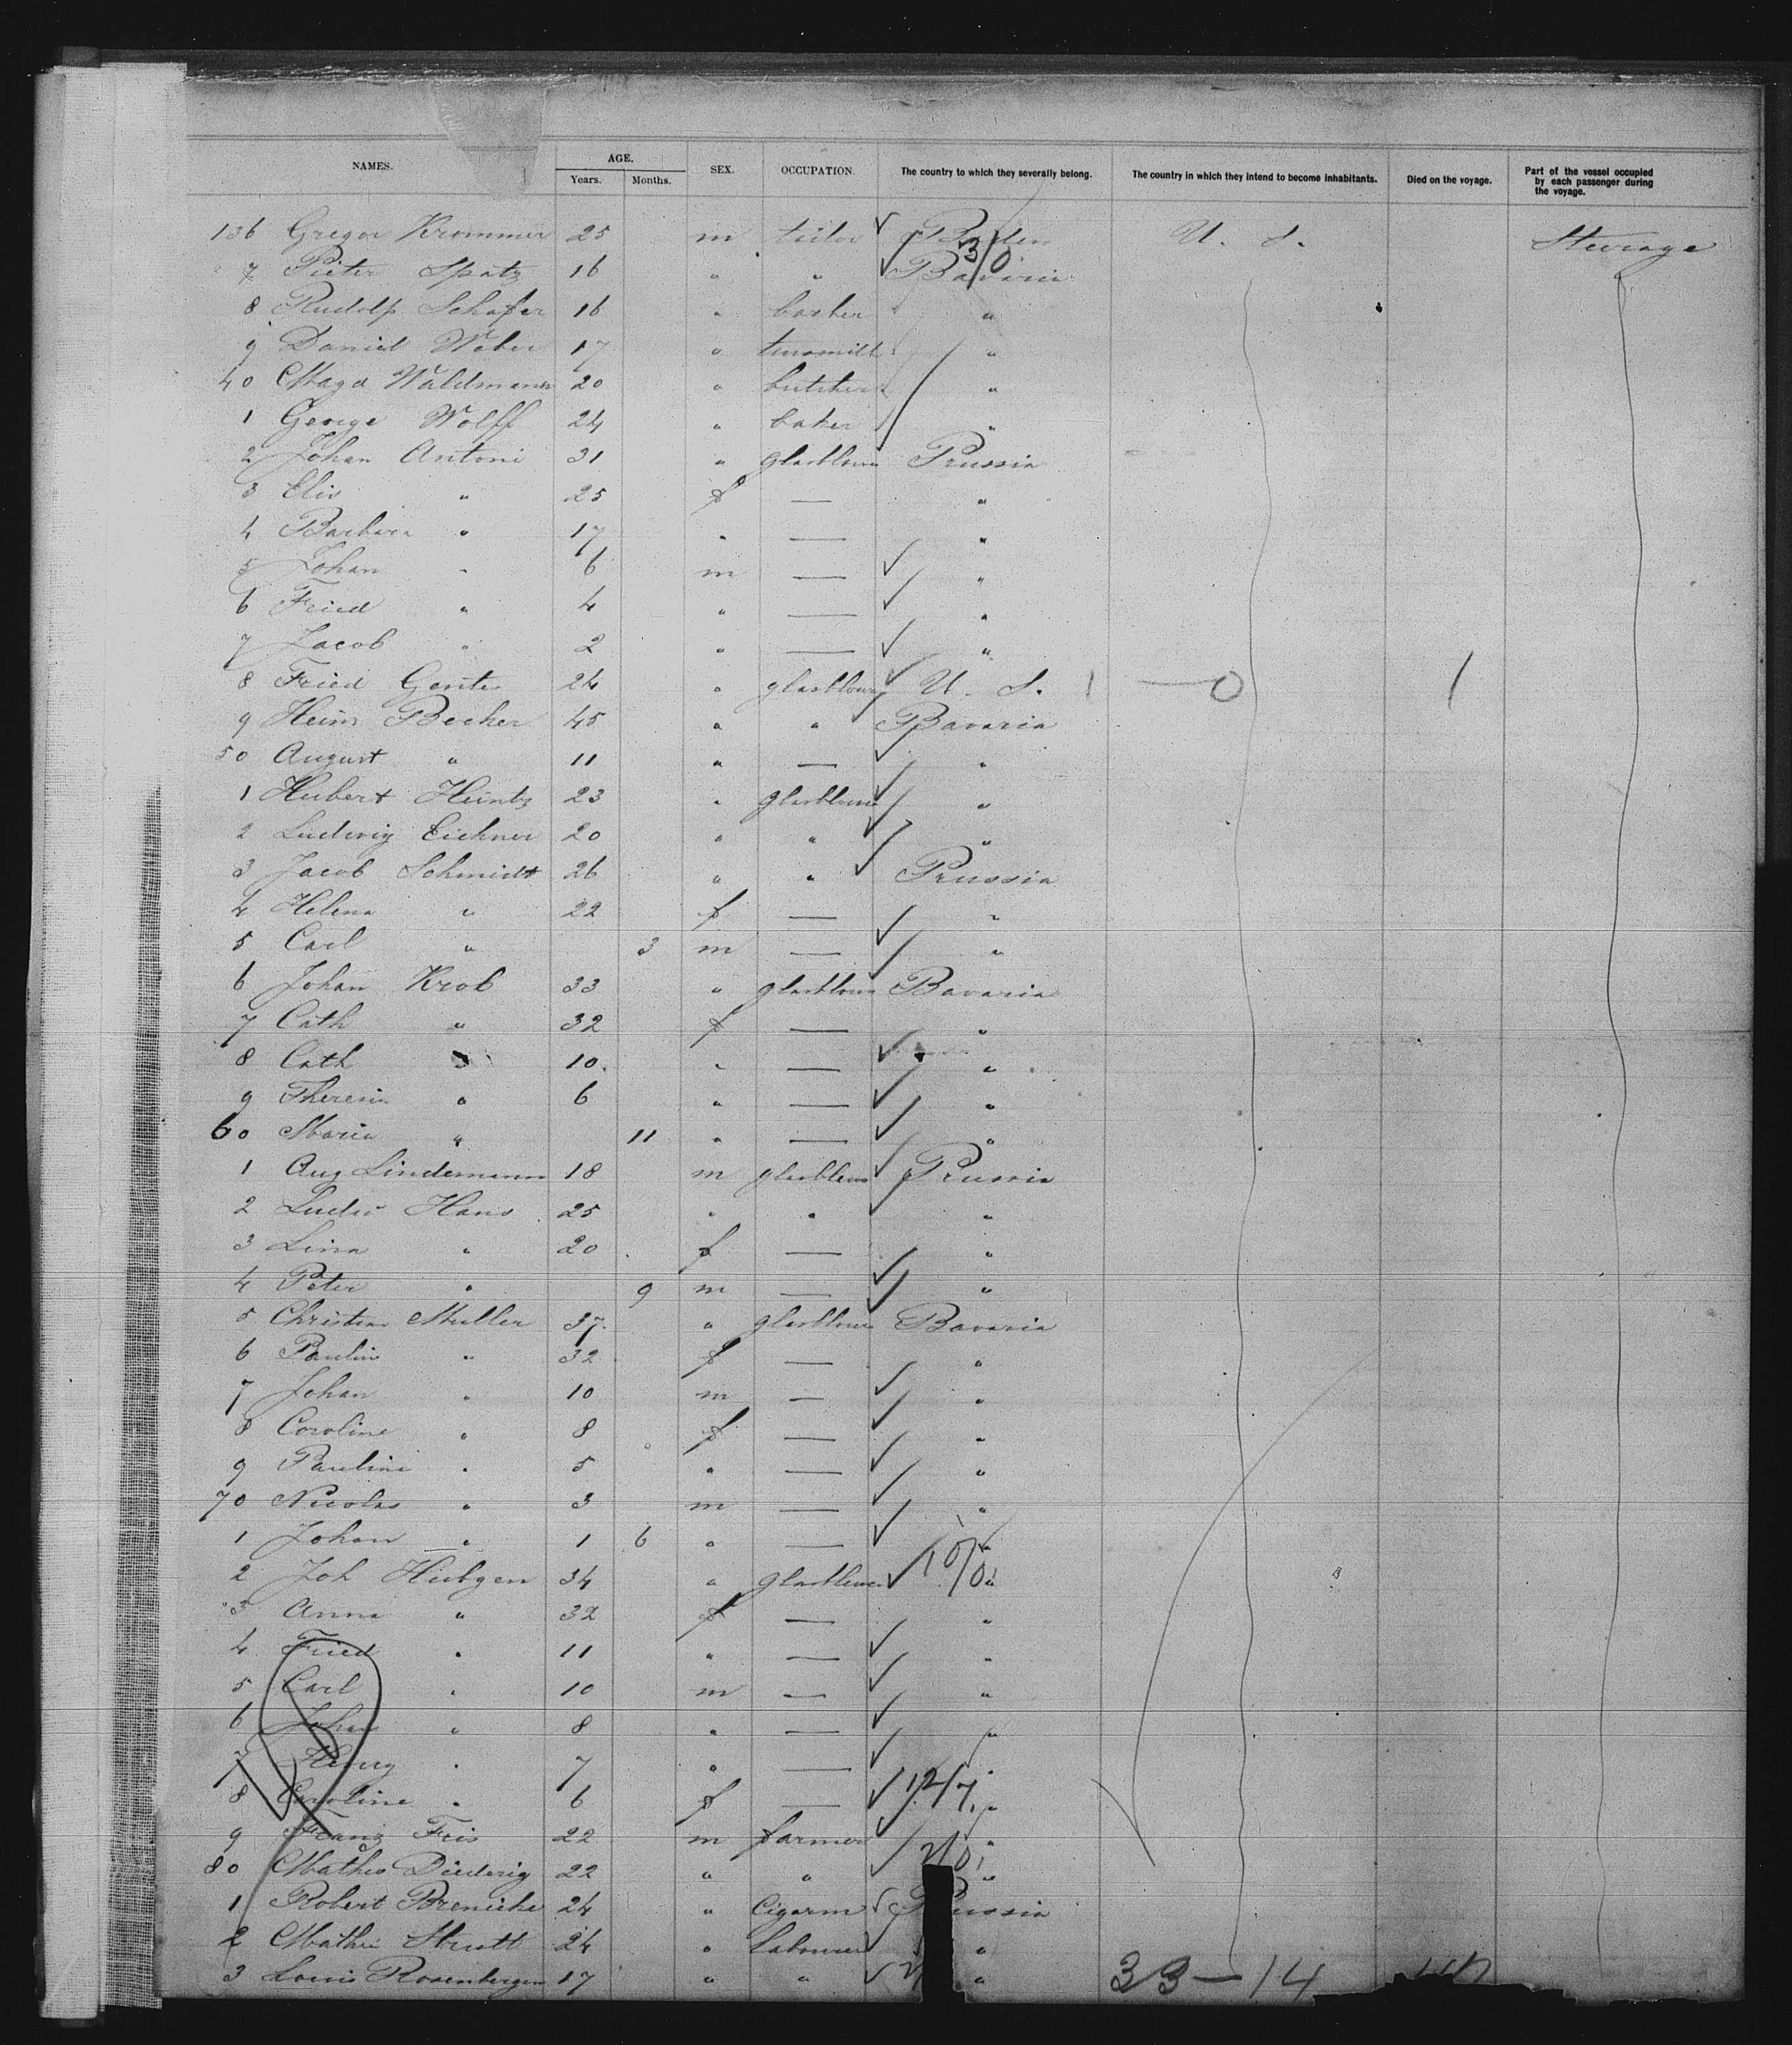 NAMES. AGE. SEX. OCCUPATION. The country to which they severally belong. The country in which they intend to become inhabitants. Died on the voyage. Part of the vessel occupied by each passenger during the voyage.
Years. Months.
136 Gregor Krommer 25 m tailor Baden U. S. Steerage
7 Pieter Spatz 16 " " Bavaria
8 Rudolf Schafer 16 " barber "
9 Daniel Weber 17 " tinsmith "
40 Magd Waldmann 20 " butcher "
1 George Wolff 24 " baker "
2 Johan Antoni 31 " glasblower Prussia
3 Elis " 25 f — "
4 Barbara " 17 " — "
5 Johan " 6 m — "
6 Fried " 4 " — "
7 Jacob " 2 " — "
8 Fried Gente 24 " glasblower U. S. 1 — 0 1
9 Heinr Becher 45 " " Bavaria
50 August " 11 " — "
1 Hubert Heintz 23 " glasblower "
2 Ludwig Eichner 20 " " "
3 Jacob Schmidt 26 " " Prussia
4 Helena " 22 f — "
5 Carl " 3 m — "
6 Johan Krob 33 " glasblower Bavaria
7 Cath " 32 f — "
8 Cath " 10 " — "
9 Theresia " 6 " — "
60 Maria " 11 " — "
1 Aug Lindemann 18 m glasblower Prussia
2 Ludw Hans 25 " " "
3 Lina " 20 f — "
4 Peter " 9 m — "
5 Christian Muller 37 " glasblower Bavaria
6 Paulin " 32 f — "
7 Johan " 10 m — "
8 Caroline " 8 f — "
9 Pauline " 5 " — "
70 Nicolas " 3 m — "
1 Johan " 1 6 " — "
2 Joh Hubgen 34 " glasblower 10/0 "
3 Anna " 32 f — "
4 Fried " 11 " — "
5 Carl " 10 m — "
6 Johan " 8 " — "
7 Henry " 7 " — "
8 Caroline " 6 f — 12/7 "
9 Franz Feis 22 m farmer "
80 Mathis Diederig 22 " " 2/0 "
1 Robert Breniche 24 " Cigarm Prussia
2 Mathi Strutt 24 " Labourer "
3 Louis Rosenbergen 17 " " " 33 — 14